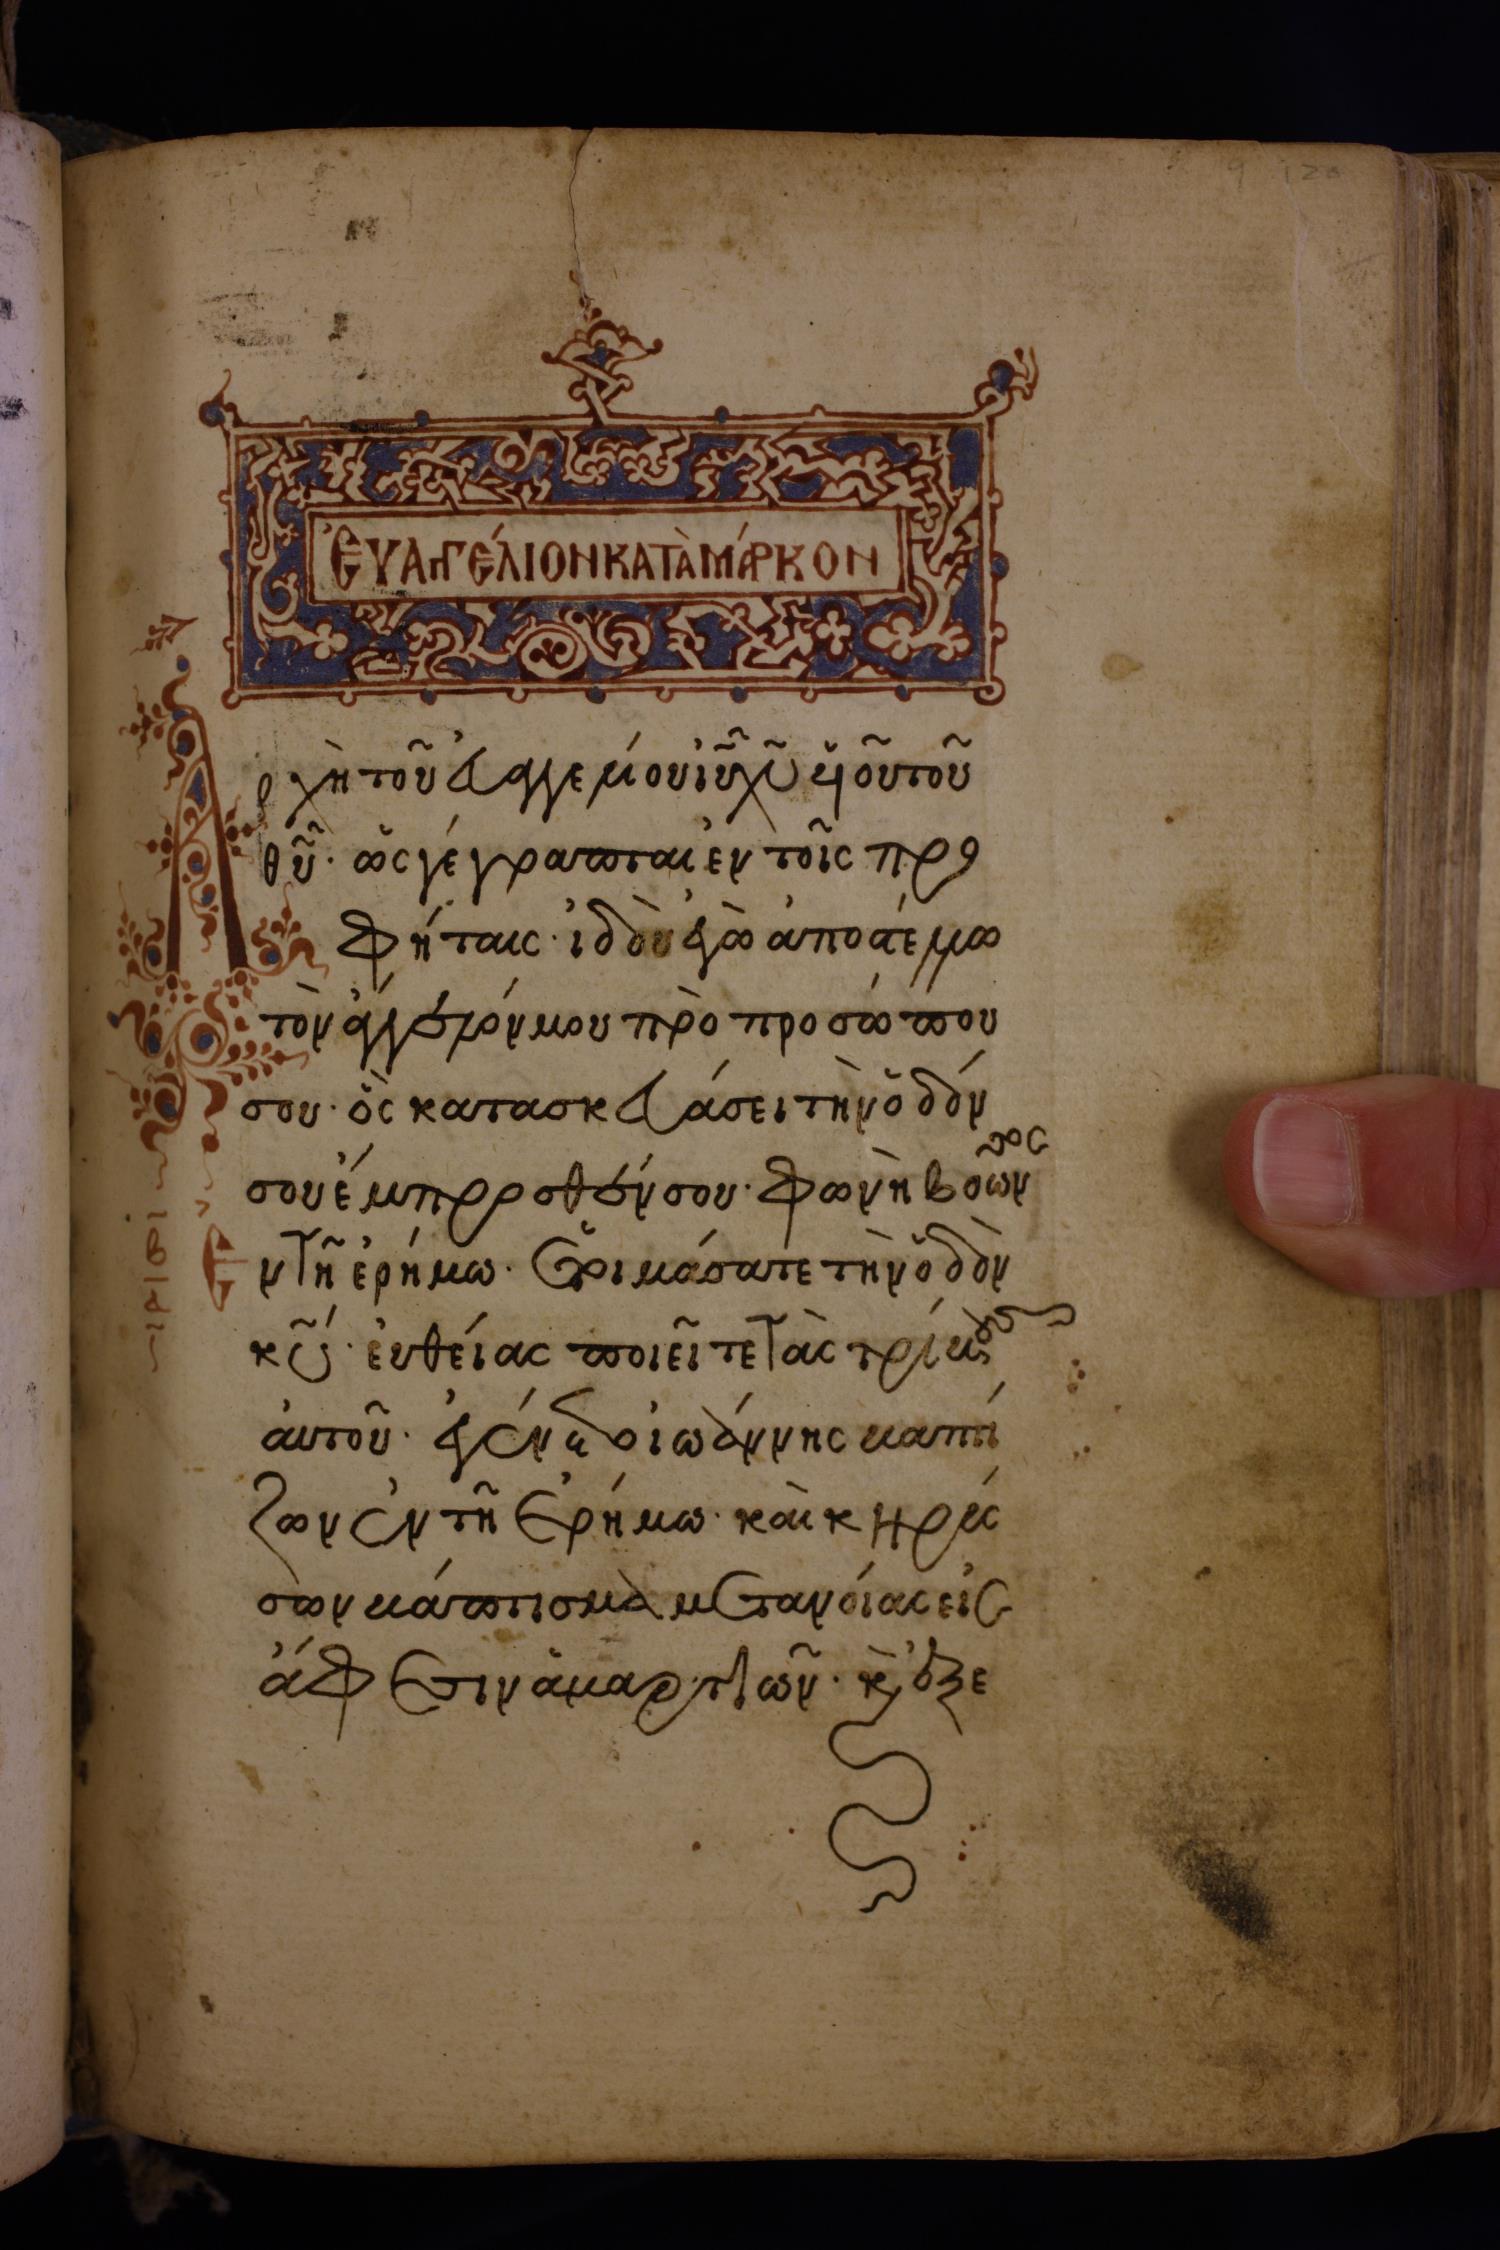 ἘΥΑΓΓΈΛΙΟΝ ΚΑΤᾺ ΜΆΡΚΟΝ
Ἀρχὴ τοῦ ἐυαγγελίου ἰῦ χῦ ὑιοῦ τοῦ
θῦ· ὡς γέγραπται ἐν τοῖς προ
φήταις· ἰδοὺ ἐγὼ ἀποστέλλω
τὸν ἄγγελόν μου πρὸ προσώπου
σου· ὃς κατασκευάσει τὴν ὁδόν
σου ἔμπροσθέν σου· φωνὴ βοῶντος
ἐν τῆ ἐρήμω· ἑτοιμάσατε τὴν ὁδὸν
κῦ· ἐυθείας ποιεῖτε τὰς τρίβους
ἀυτοῦ· ἐγένετο ἰωάννης βαπτί
ζων ἐν τῆ ἐρήμω· καὶ κηρύς
σων βάπτισμα μετανοίας εἰς
ἄφεσιν ἁμαρτιῶν· κ ἐξε